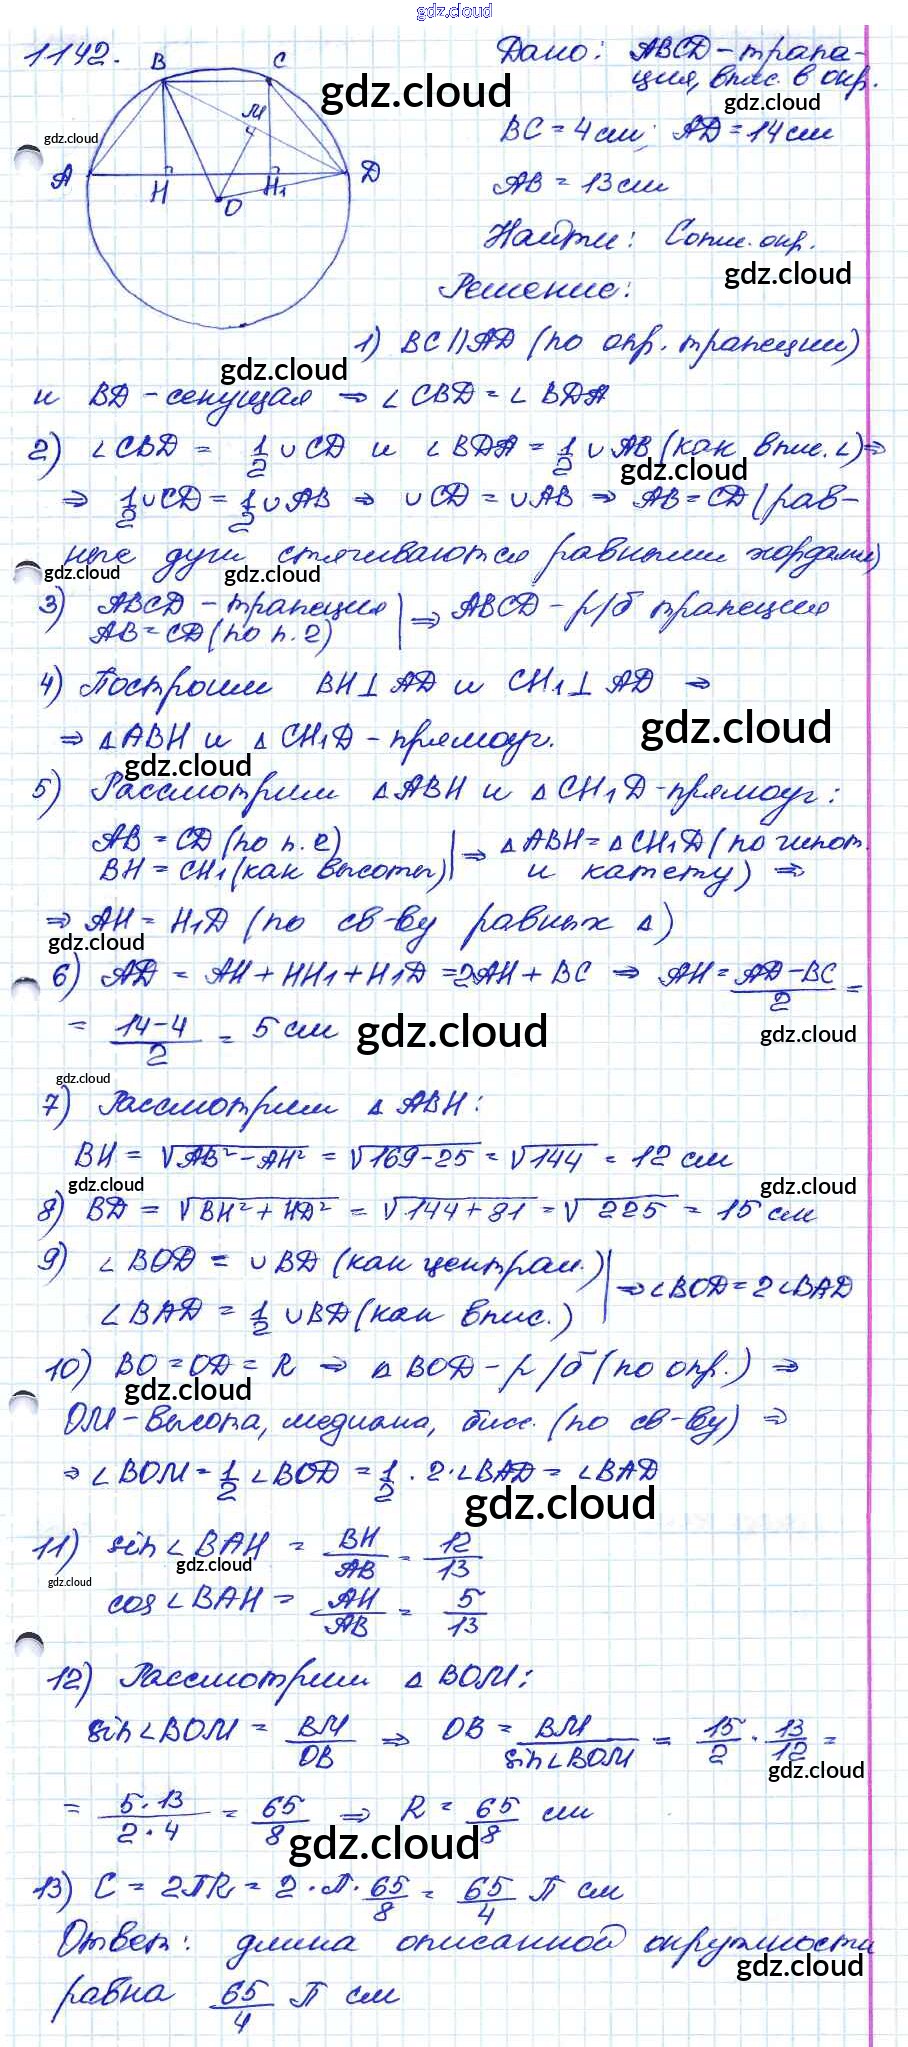 gdz.cloud
1142.
B C
M
A H O H₁ D
Дано: ABCD – трапе-
ция, впис. в окр.
BC = 4 см; AD = 14 см
AB = 13 см
Найти: Cопис. окр.
Решение:
1) BC || AD (по опр. трапеции)
и BD – секущая ⇒ ∠CBD = ∠BDA
2) ∠CBD = 1/2 ∪CD и ∠BDA = 1/2 ∪AB (как впис. ∠) ⇒
⇒ 1/2 ∪CD = 1/2 ∪AB ⇒ ∪CD = ∪AB ⇒ AB = CD (рав-
ные дуги стягиваются равными хордами)
3) ABCD – трапеция
AB = CD (по п. 2) | ⇒ ABCD – р/б трапеция
4) Построим BH ⊥ AD и CH₁ ⊥ AD ⇒
⇒ △ABH и △CH₁D – прямоуг.
5) Рассмотрим △ABH и △CH₁D – прямоуг:
AB = CD (по п. 2) | ⇒ △ABH = △CH₁D (по гипот.
BH = CH₁ (как высоты) | и катету) ⇒
⇒ AH = H₁D (по св-ву равных △)
6) AD = AH + HH₁ + H₁D = 2AH + BC ⇒ AH = (AD – BC)/2 =
= (14 – 4)/2 = 5 см
7) Рассмотрим △ABH:
BH = √(AB² – AH²) = √(169 – 25) = √144 = 12 см
8) BD = √(BH² + HD²) = √(144 + 81) = √225 = 15 см
9) ∠BOD = ∪BD (как централ.)
∠BAD = 1/2 ∪BD (как впис.) | ⇒ ∠BOD = 2∠BAD
10) BO = OD = R ⇒ △BOD – р/б (по опр.) ⇒
OM – высота, медиана, бисс. (по св-ву) ⇒
⇒ ∠BOM = 1/2 ∠BOD = 1/2 · 2 · ∠BAD = ∠BAD
11) sin∠BAH = BH/AB = 12/13
cos∠BAH = AH/AB = 5/13
12) Рассмотрим △BOM:
sin∠BOM = BM/OB ⇒ OB = BM/sin∠BOM = 15/2 · 13/12 =
= (5·13)/(2·4) = 65/8 ⇒ R = 65/8 см
13) C = 2πR = 2 · π · 65/8 = 65/4 π см
Ответ: длина описанной окружности
равна 65/4 π см